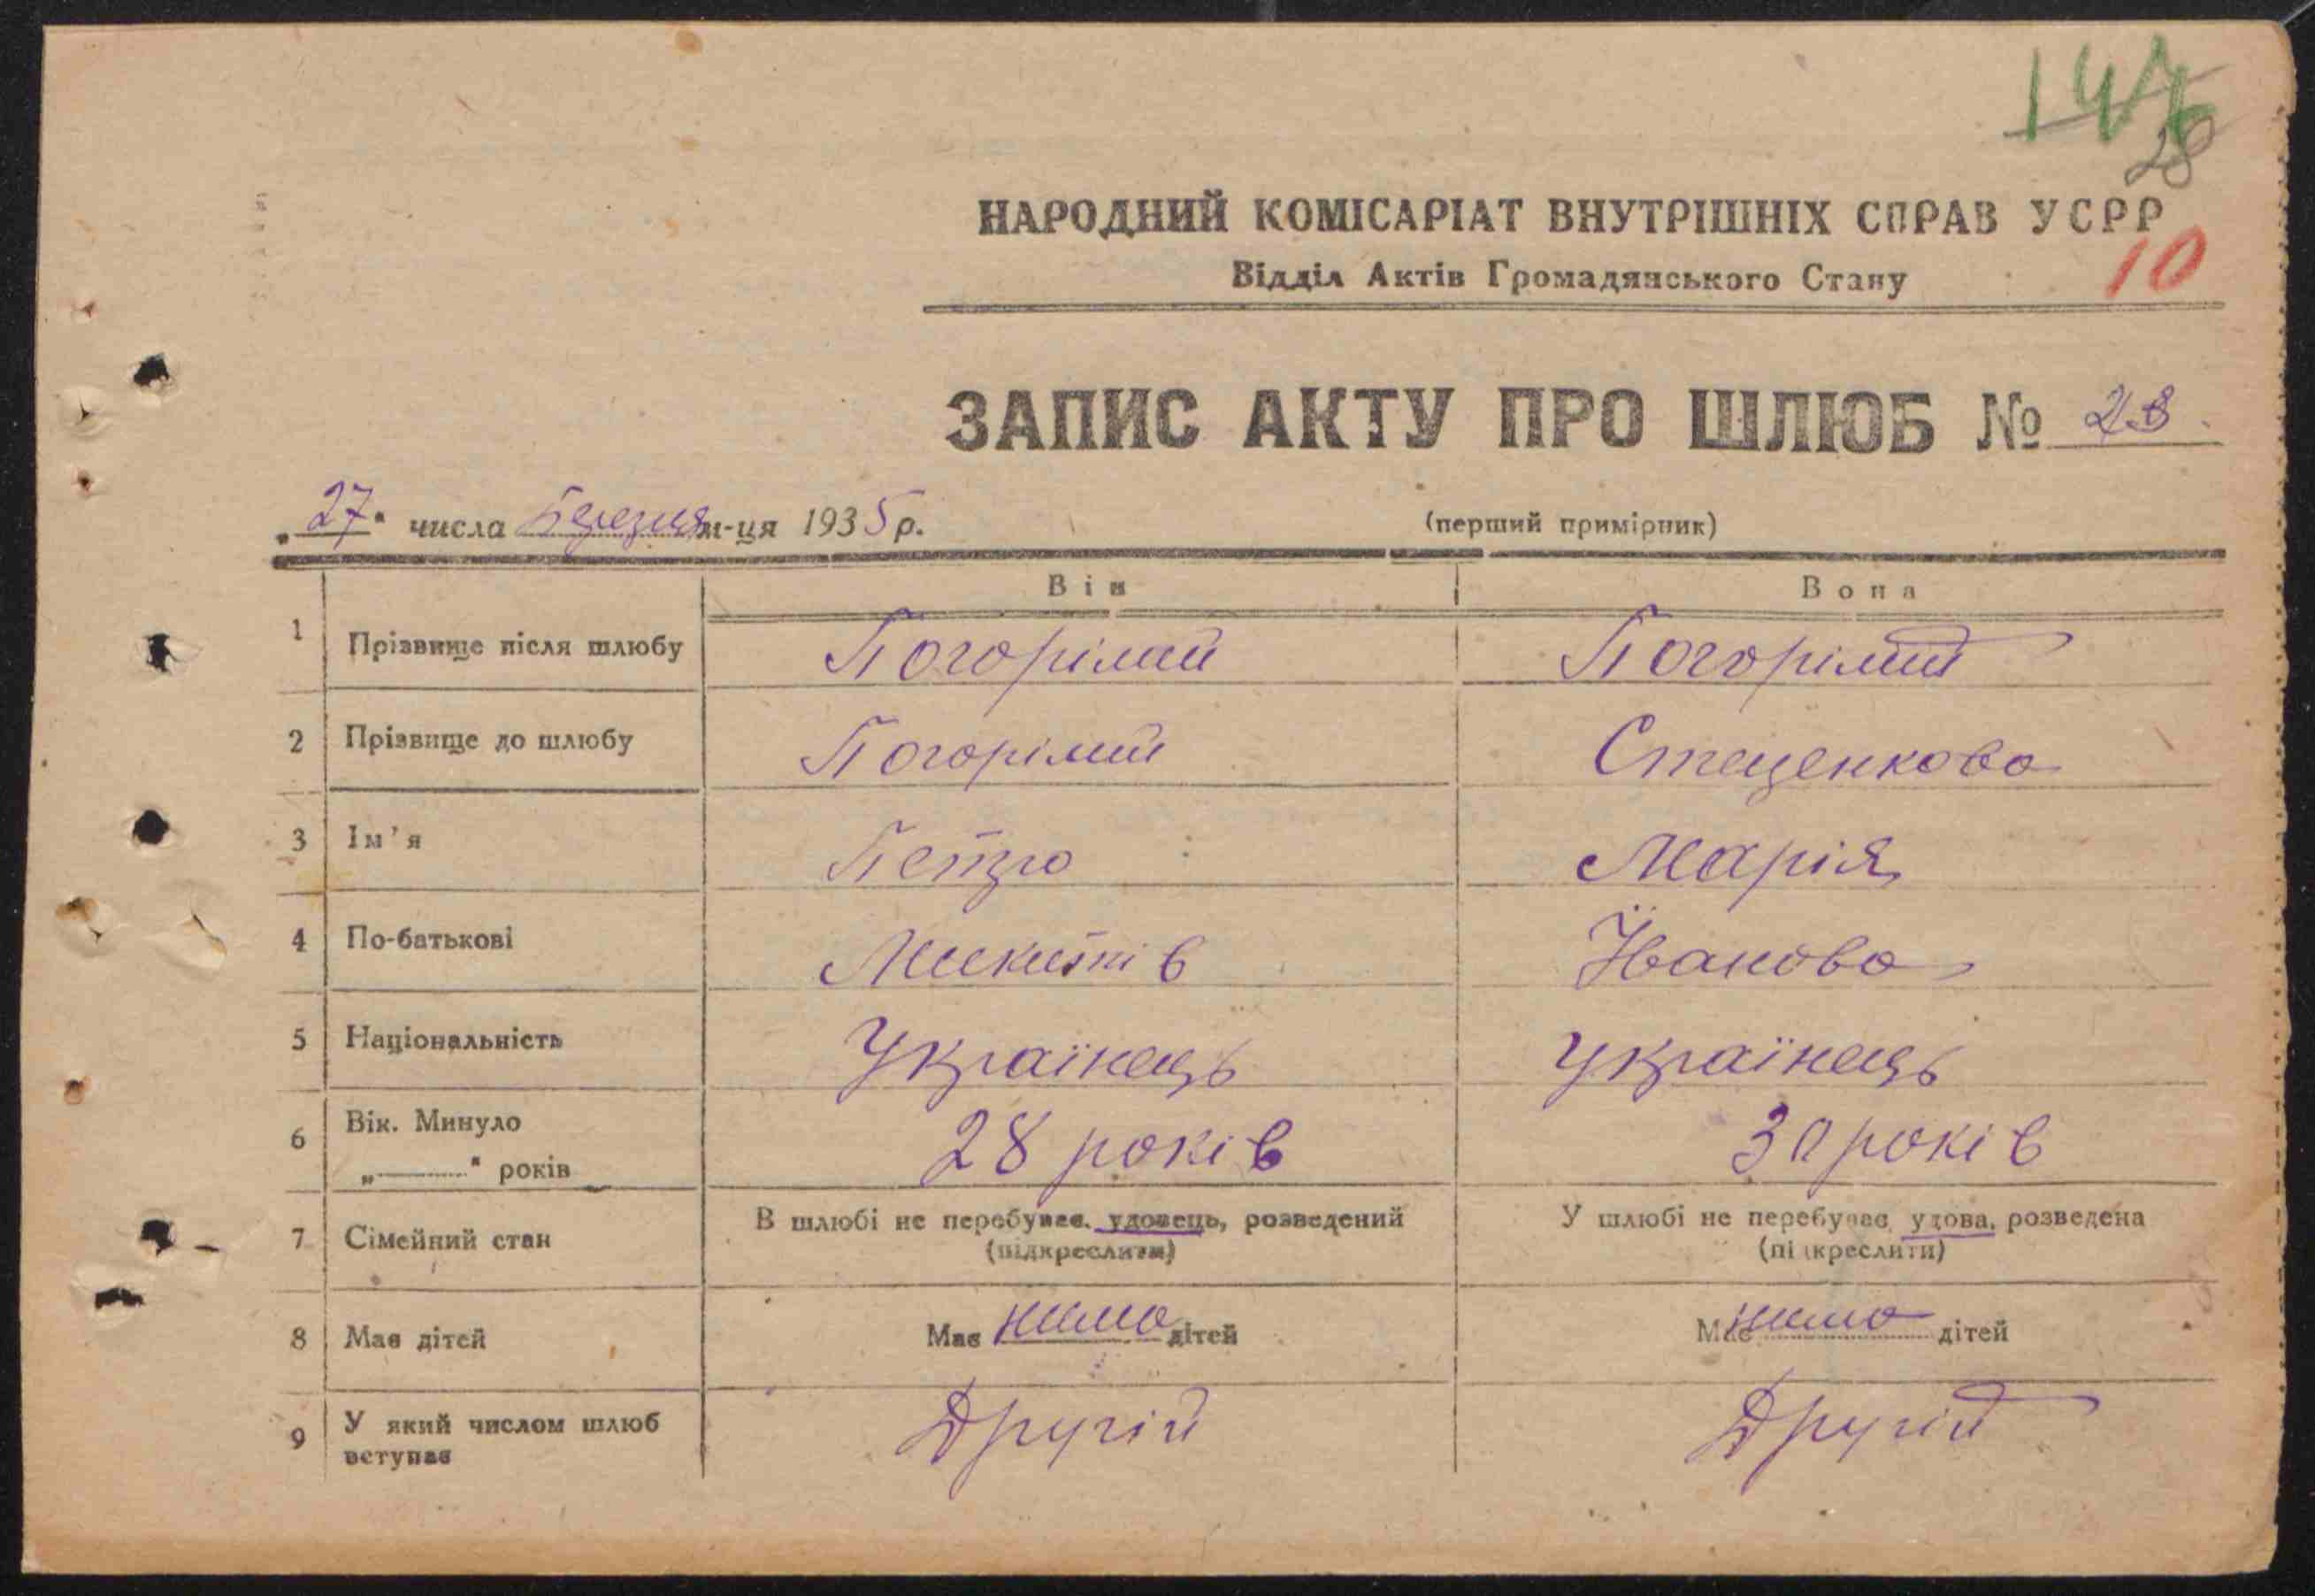 146
28
НАРОДНИЙ КОМІСАРІАТ ВНУТРІШНІХ СПРАВ УСРР
Відділ Актів Громадянського Стану
10
ЗАПИС АКТУ ПРО ШЛЮБ №
„27“ числа Березня м-ця 1935 р. (перший примірник)
Він Вона
1 Прізвище після шлюбу Погорілий Погорілий
2 Прізвище до шлюбу Погорілий Стеценкова
3 Ім'я Петро Марія
4 По-батькові Микитів Йванова
5 Національність Українець Українець
6 Вік. Минуло „ “ років 28 років 30 років
7 Сімейний стан В шлюбі не перебуває, удовець, розведений (підкреслити) У шлюбі не перебуває, удова, розведена (підкреслити)
8 Має дітей Має нимо дітей Має нимо дітей
9 У який числом шлюб вступає Другій Другій